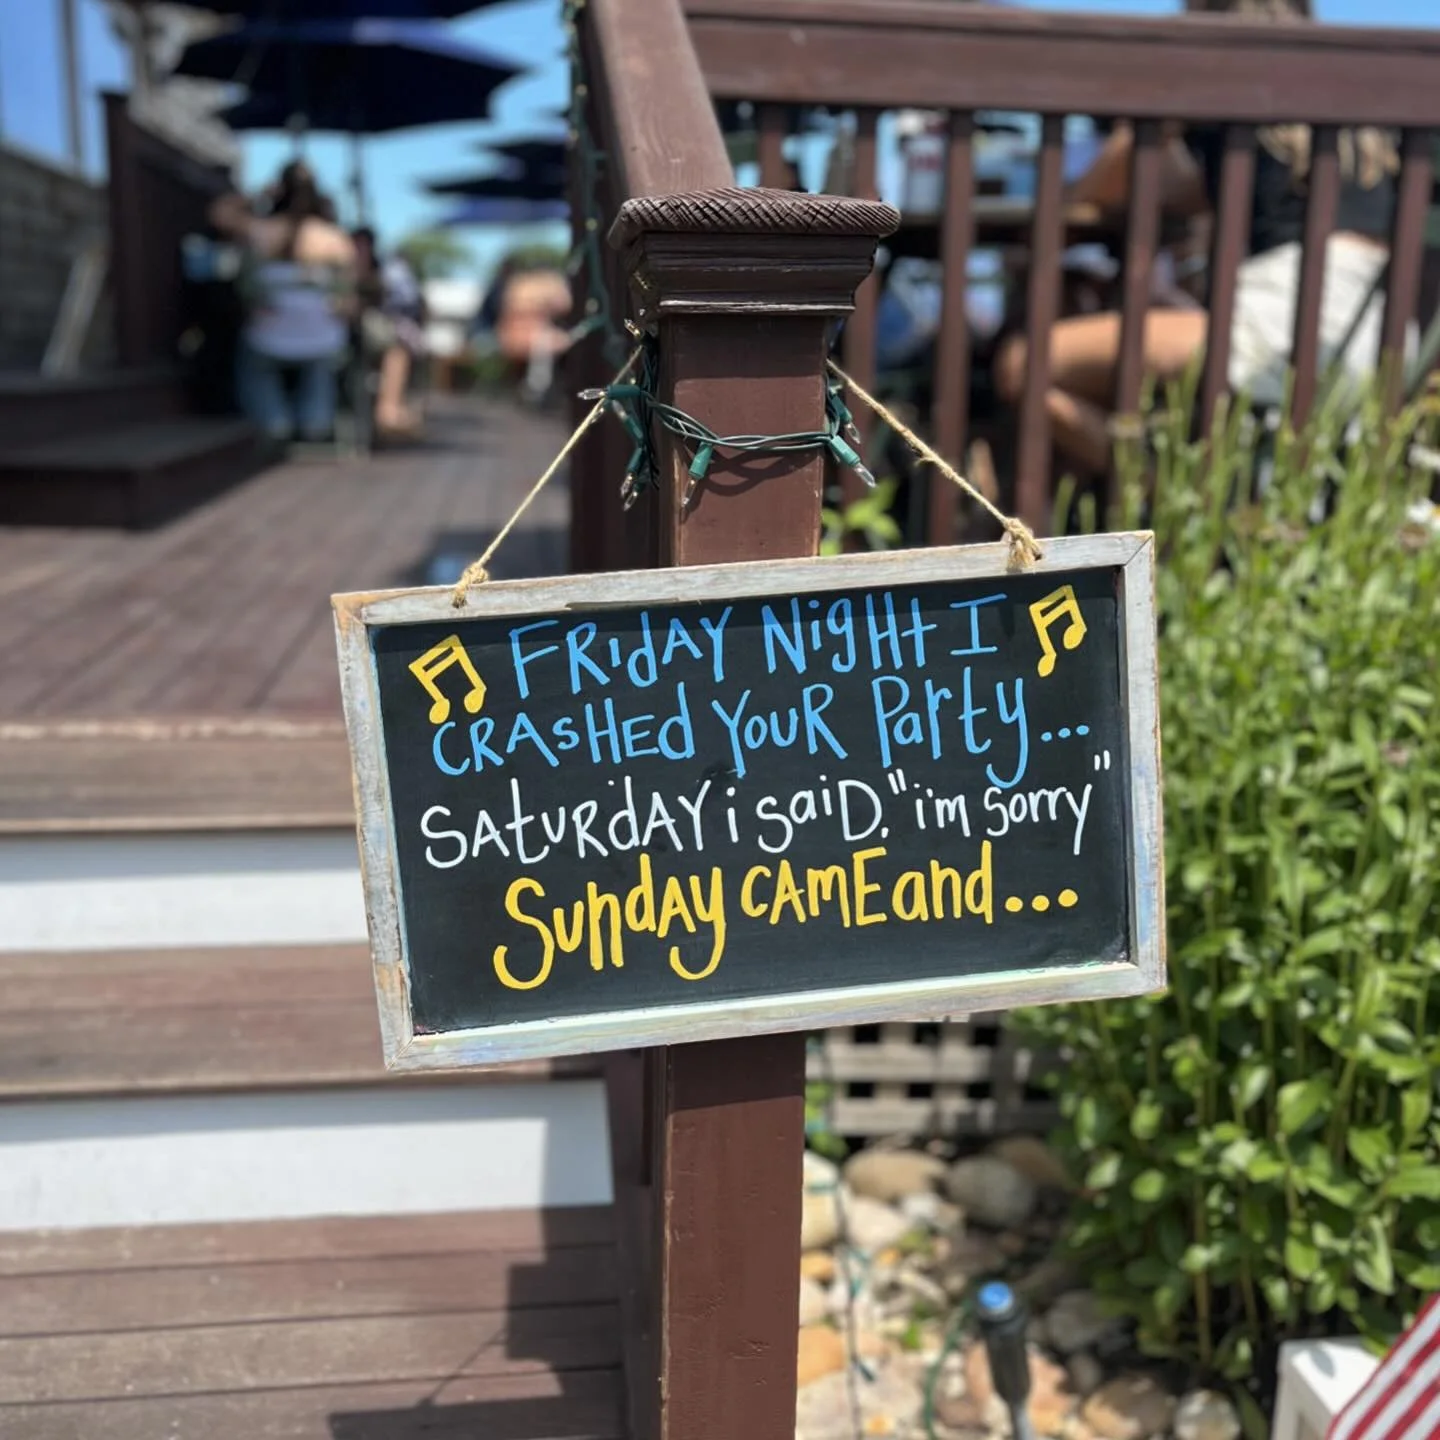 FRidAY NigHt I
CRAsHEd YouR Party...
SAtuRdAY i saiD. "i'm sorry"
SundAy CAmE and...